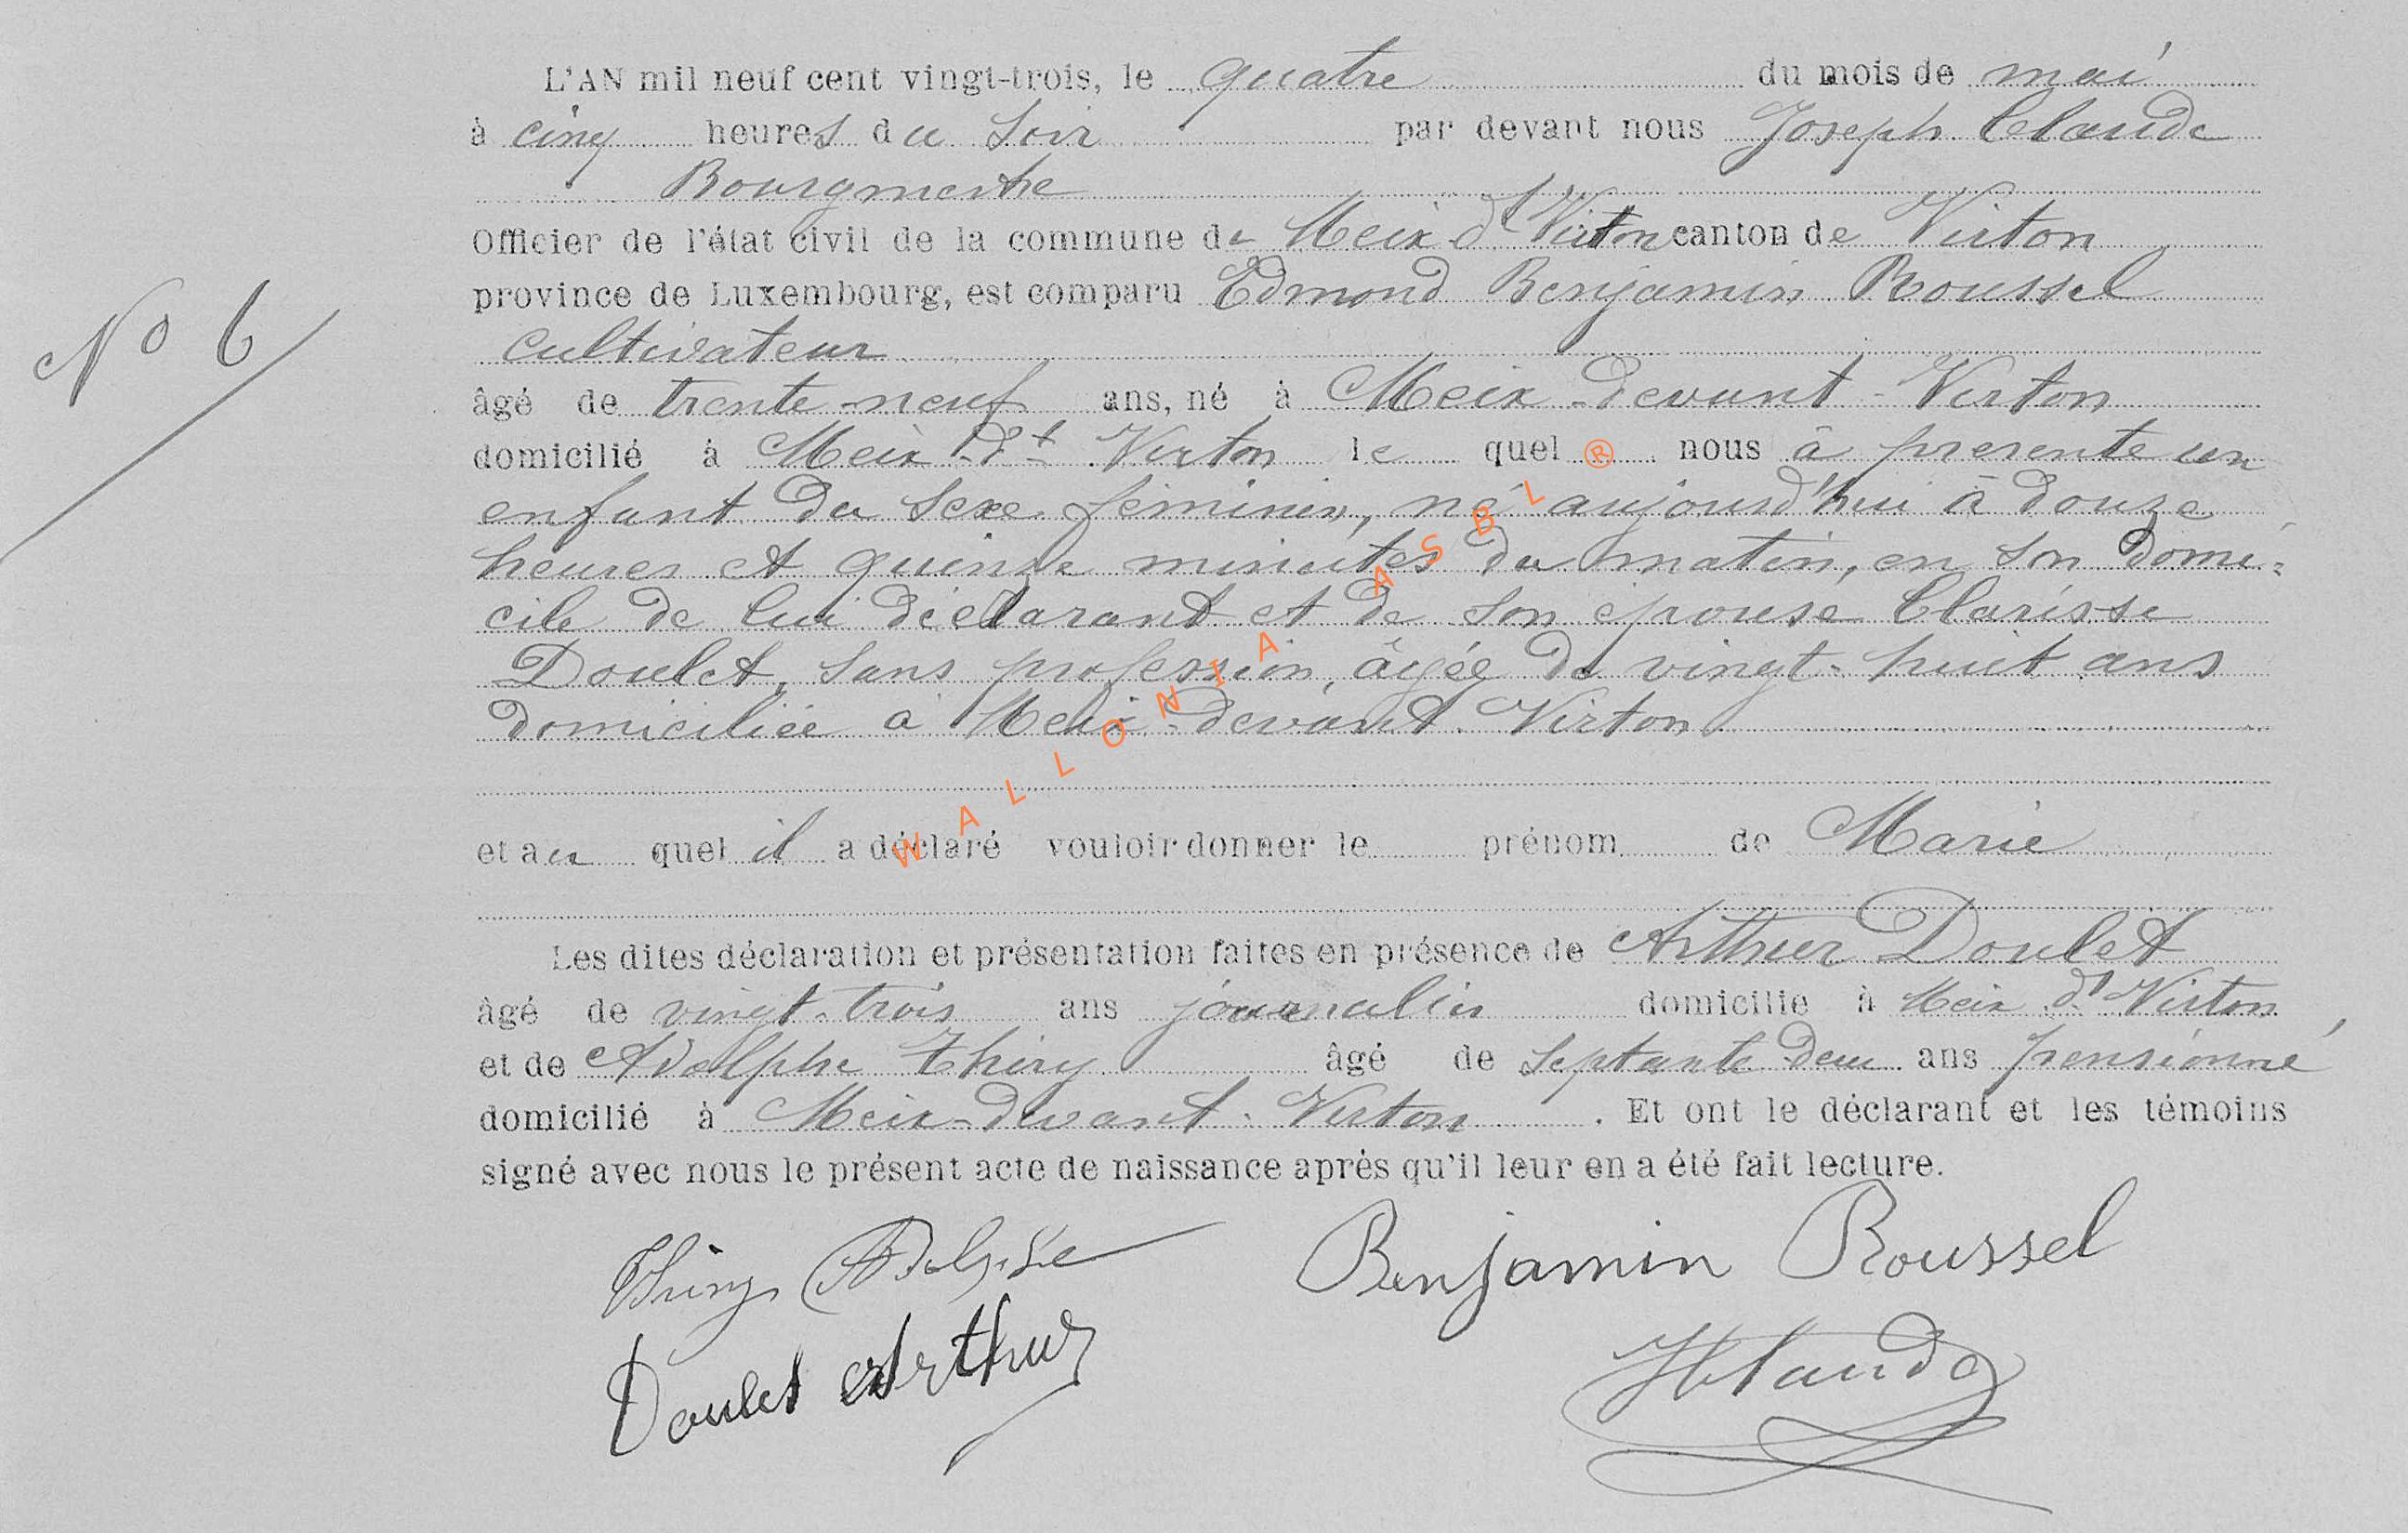 L'AN mil neuf cent vingt-trois, le quatre du mois de mai
à cinq heures du soir par devant nous Joseph Claude
Bourgmestre
Officier de l'état civil de la commune de Meix dt Virton canton de Virton
province de Luxembourg, est comparu Edmond Benjamin Roussel
cultivateur
No 6
âgé de trente-neuf ans, né à Meix-devant-Virton
domicilié à Meix-dt-Virton le quel ® nous à presenté un
enfant du sexe féminin, né aujourd'hui à douze
heures et quinze minutes du matin, en son domi-
cile de lui déclarant et de son épouse Clarisse
Doulet, sans profession, âgée de vingt-huit ans
domiciliée a Meix-devant-Virton
WALLONIA ASBL
et au quel il a déclaré vouloir donner le prénom de Marie
Les dites déclaration et présentation faites en présence de Arthur Doulet
âgé de vingt-trois ans journalier domicilié à Meix dt Virton
et de Adolphe Thiry âgé de septante deux ans pensionné
domicilié à Meix-devant-Virton. Et ont le déclarant et les témoins
signé avec nous le présent acte de naissance après qu'il leur en a été fait lecture.
Thiry Adolphe Benjamin Roussel
Doulet Arthur JClaude